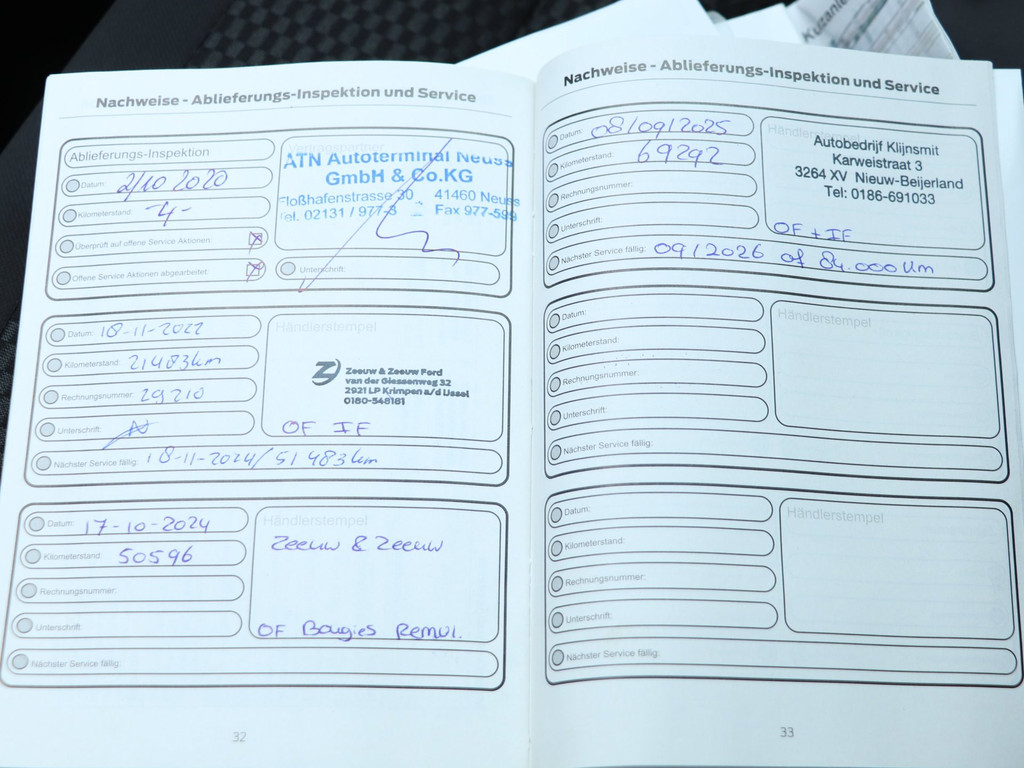 Kuzanie
Nachweise - Ablieferungs-Inspektion und Service
Ablieferungs-Inspektion
Datum: 2/10 2020
Kilometerstand: -4-
Überprüft auf offene Service Aktionen:
Offene Service Aktionen abgearbeitet:
Vertragspartner
ATN Autoterminal Neuss
GmbH & Co.KG
Floßhafenstrasse 30 41460 Neuss
Tel. 02131 / 977-3 Fax 977-599
Unterschrift:
Datum: 18-11-2022
Kilometerstand: 21483km
Rechnungsnummer: 29210
Unterschrift:
Händlerstempel
Zeeuw & Zeeuw Ford
van der Giessenweg 32
2921 LP Krimpen a/d IJssel
0180-548181
OF IF
Nächster Service fällig: 18-11-2024/ 51 483km
Datum: 17-10-2024
Kilometerstand: 50596
Rechnungsnummer:
Unterschrift:
Händlerstempel
Zeeuw & Zeeuw
OF Bougies Remvl.
Nächster Service fällig:
32
Nachweise - Ablieferungs-Inspektion und Service
Datum: 08/09/2025
Kilometerstand: 69292
Rechnungsnummer:
Unterschrift:
Händlerstempel
Autobedrijf Klijnsmit
Karweistraat 3
3264 XV Nieuw-Beijerland
Tel: 0186-691033
OF + IF
Nächster Service fällig: 09/2026 of 84.000 km
Datum:
Kilometerstand:
Rechnungsnummer:
Unterschrift:
Händlerstempel
Nächster Service fällig:
Datum:
Kilometerstand:
Rechnungsnummer:
Unterschrift:
Händlerstempel
Nächster Service fällig:
33